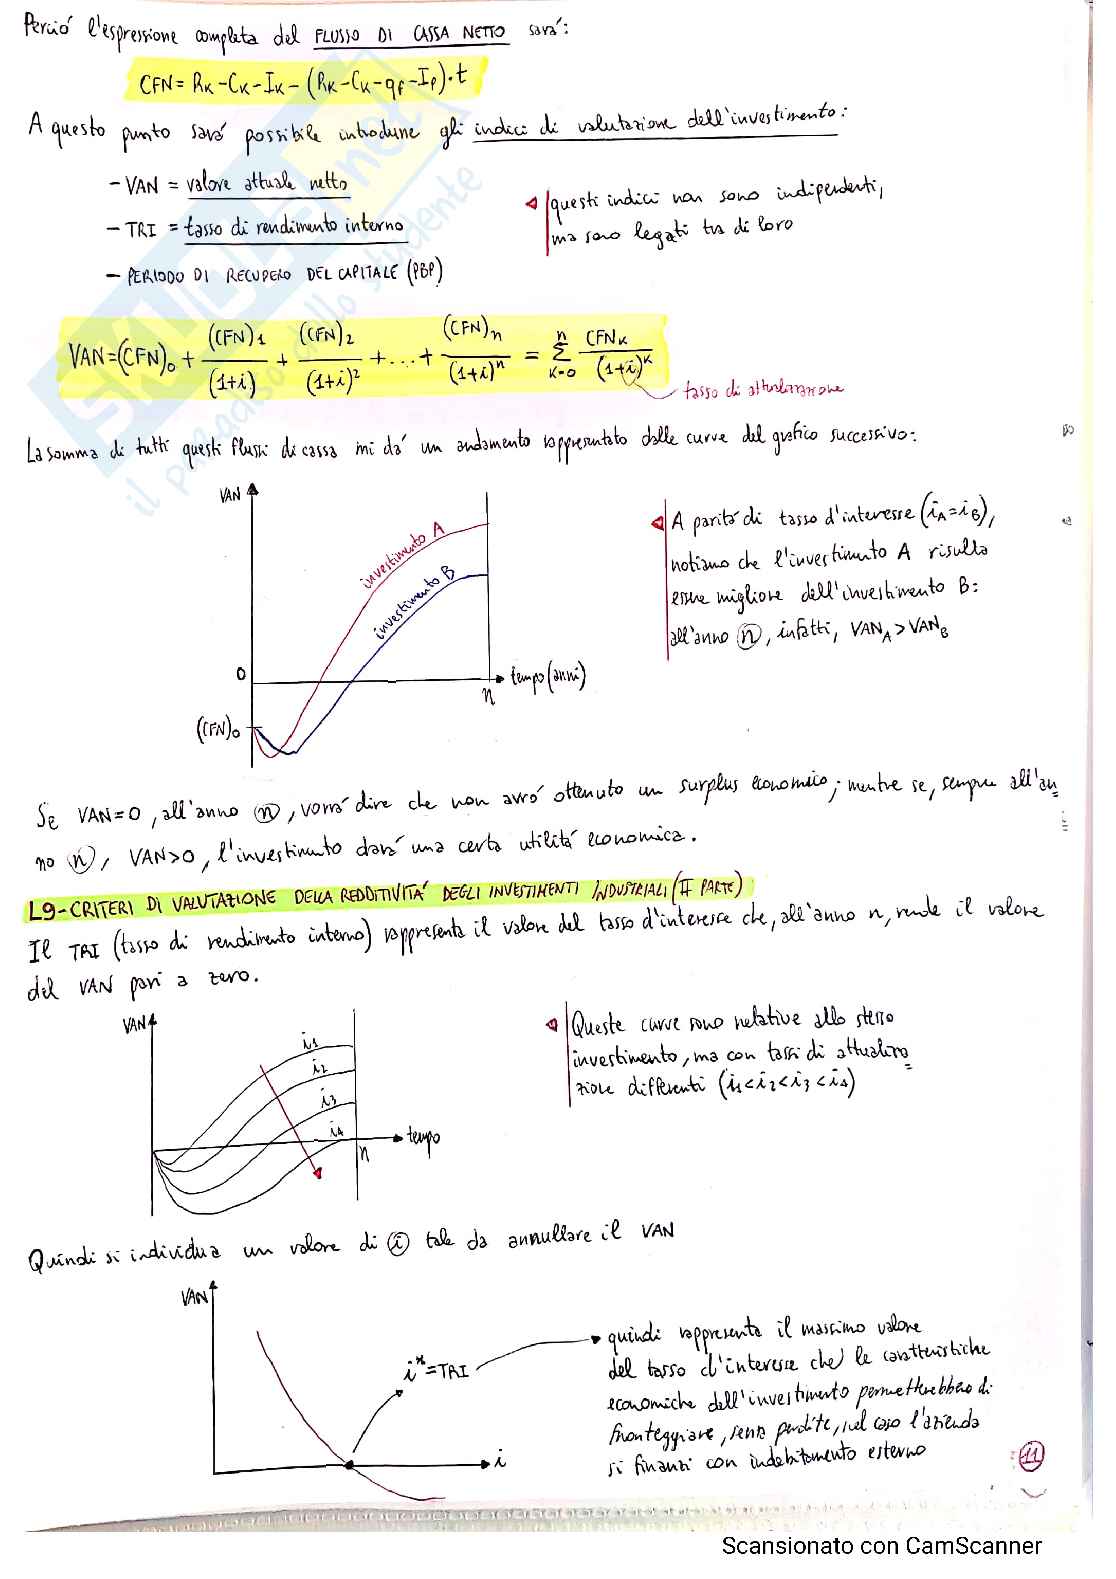 Perció l'espressione completa del FLUSSO DI CASSA NETTO sará:
CFN = Rₖ-Cₖ-Iₖ-(Rₖ-Cₖ-qf-Ip)·t
A questo punto sará possibile introdurre gli indici di valutazione dell'investimento:
- VAN = valore attuale netto
- TRI = tasso di rendimento interno
- PERIODO DI RECUPERO DEL CAPITALE (PBP)
questi indici non sono indipendenti,
ma sono legati tra di loro
VAN=(CFN)₀ + (CFN)₁/(1+i) + (CFN)₂/(1+i)² + ... + (CFN)n/(1+i)ⁿ = Σ K=0 n CFNₖ/(1+i)ᴷ
tasso di attualizzazione
La somma di tutti questi flussi di cassa mi dá un andamento rappresentato dalle curve del grafico successivo:
VAN
investimento A
investimento B
0
tempo (anni)
n
(CFN)₀
A paritá di tasso d'interesse (iA=iB),
notiamo che l'investimento A risulta
essere migliore dell'investimento B:
all'anno n, infatti, VANA>VANB
Se VAN=0, all'anno n, vorrá dire che non avró ottenuto un surplus economico; mentre se, sempre all'an=
no n, VAN>0, l'investimento dará una certa utilitá economica.
L9-CRITERI DI VALUTAZIONE DELLA REDDITIVITÁ DEGLI INVESTIMENTI INDUSTRIALI (II PARTE)
Il TRI (tasso di rendimento interno) rappresenta il valore del tasso d'interesse che, all'anno n, rende il valore
del VAN pari a zero.
VAN
i₁
i₂
i₃
i₄
tempo
n
Queste curve sono relative allo stesso
investimento, ma con tassi di attualizza=
zione differenti (i₁<i₂<i₃<i₄)
Quindi si individua un valore di i tale da annullare il VAN
VAN
i*=TRI
i
quindi rappresenta il massimo valore
del tasso d'interesse che le caratteristiche
economiche dell'investimento permetterebbero di
fronteggiare, senza perdite, nel caso l'azienda
si finanzi con indebitamento esterno
11
Scansionato con CamScanner
SKUOLA.net
il paradiso dello studente